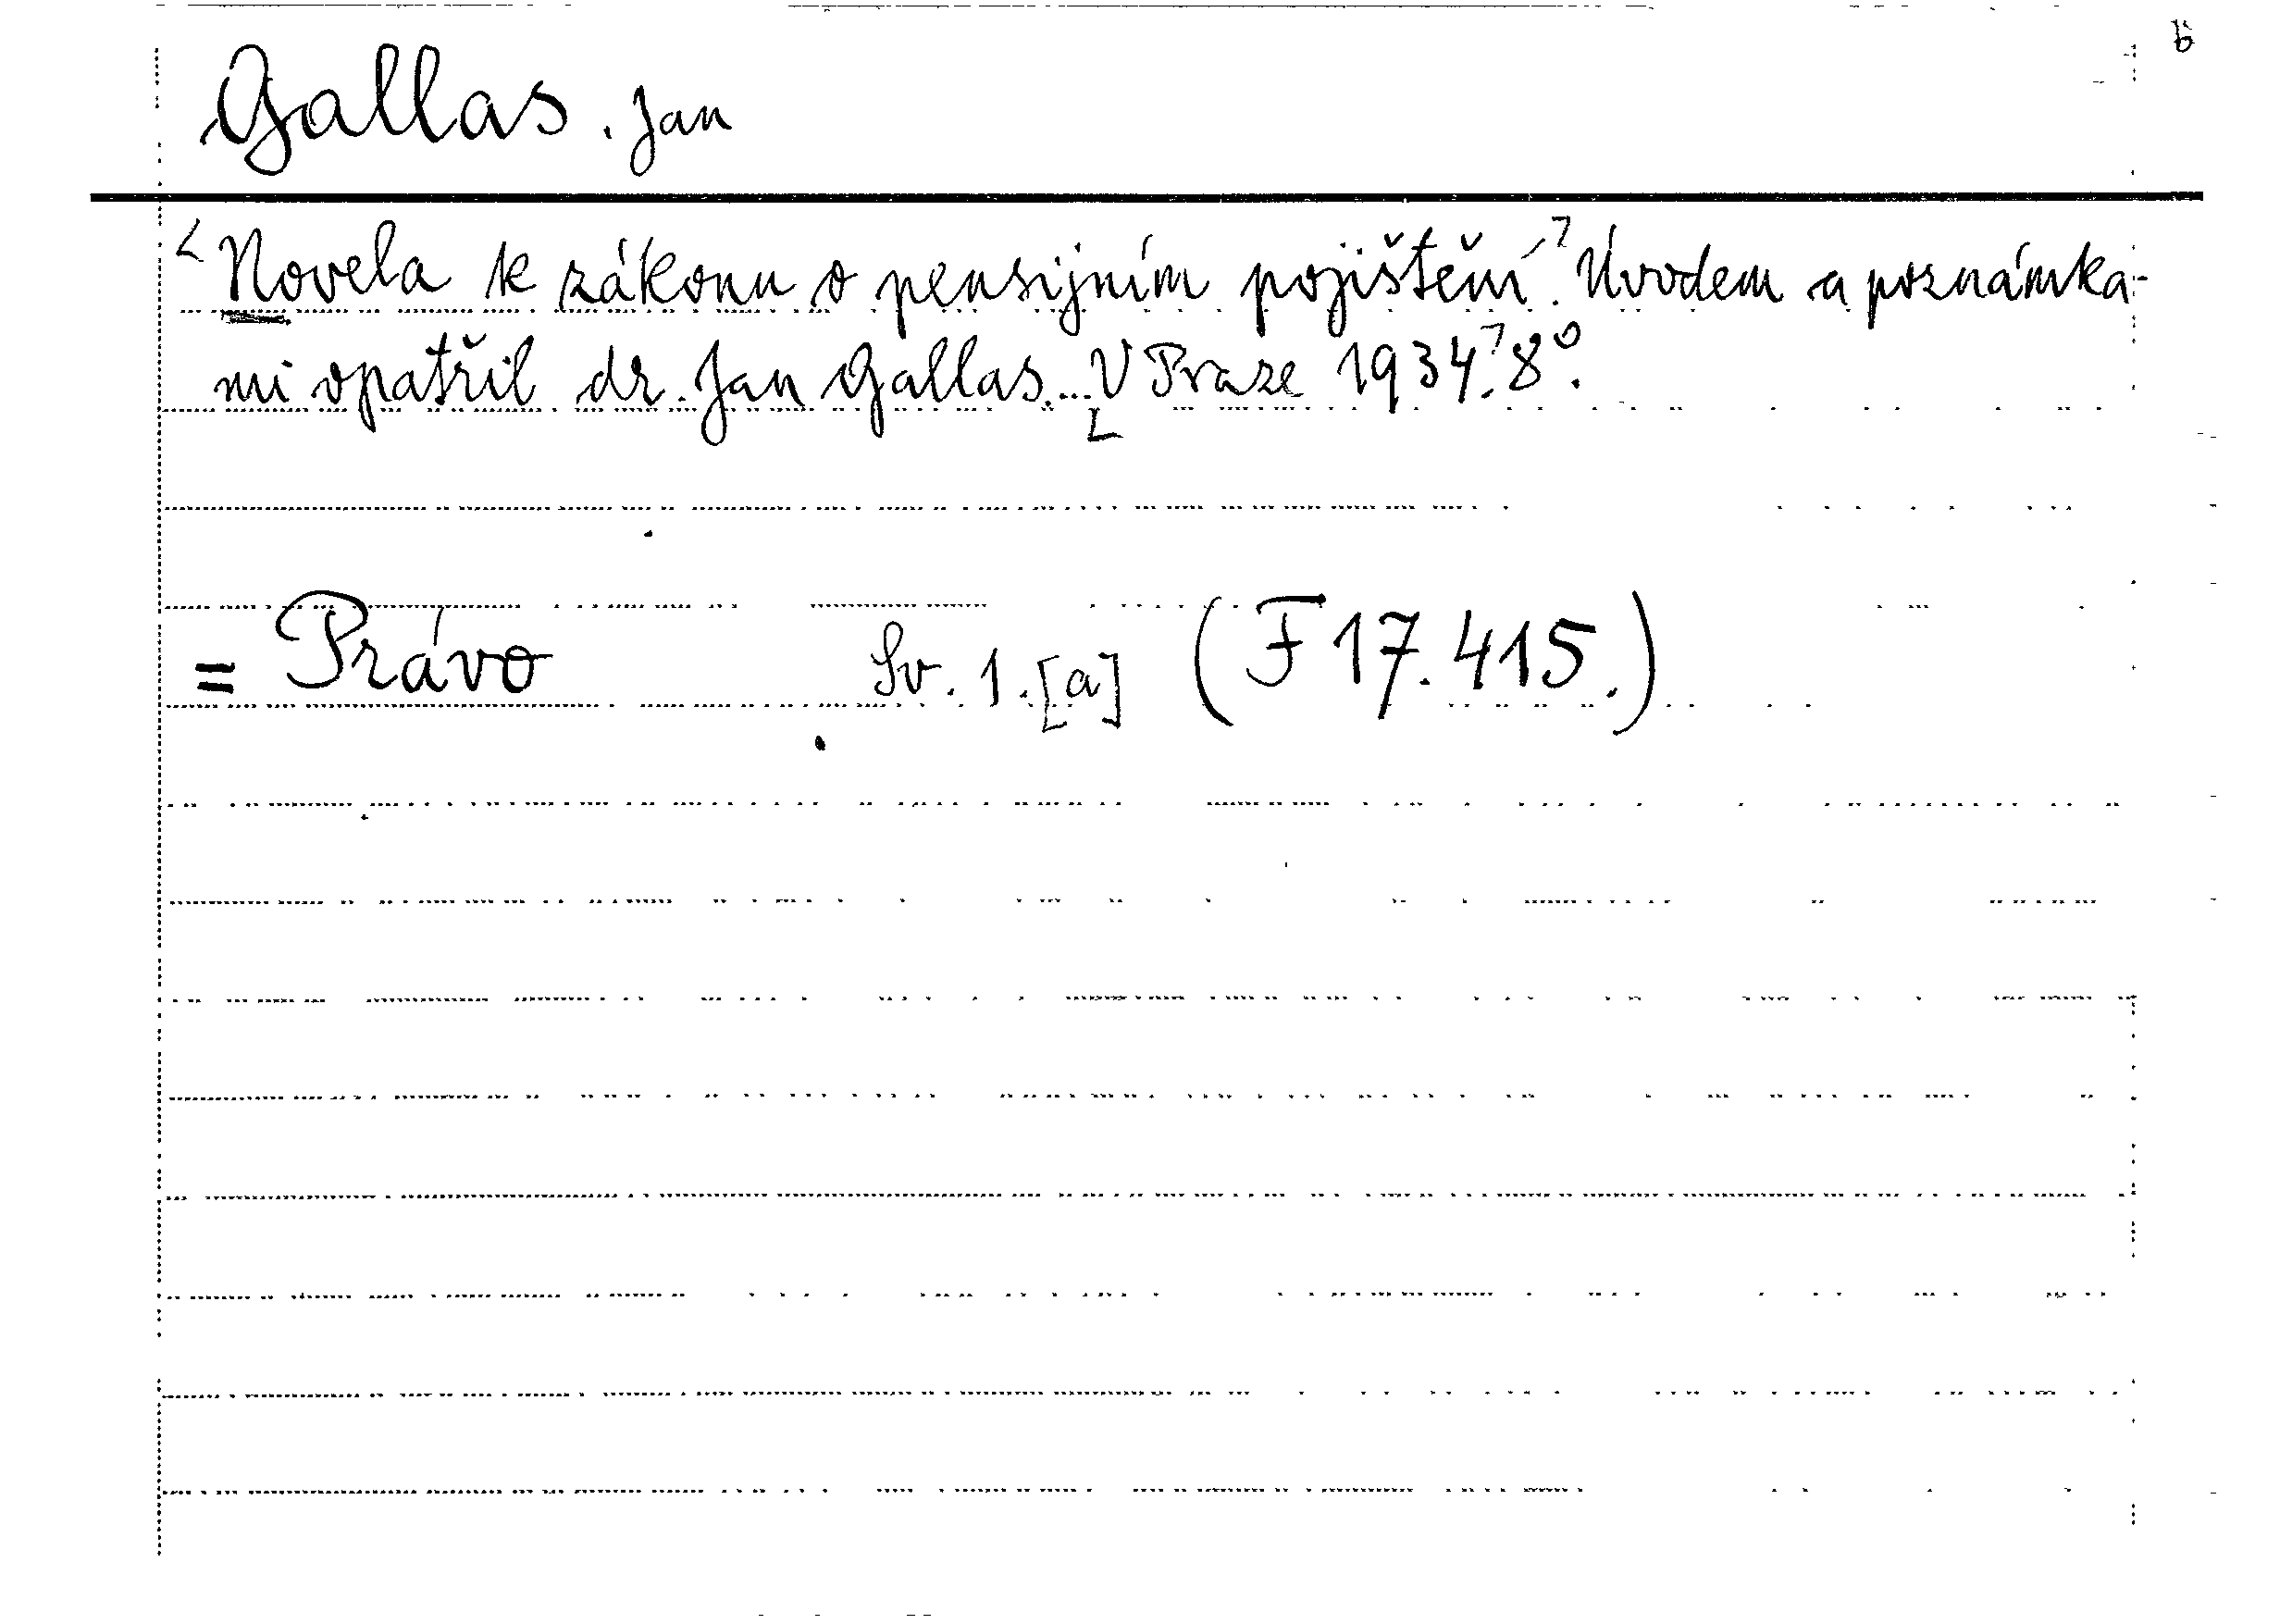 b
Gallas, Jan
Novela k zákonu o pensijním pojištění. Úvodem a poznámka-
mi opatřil dr. Jan Gallas... V Praze 1934. 8°.
= Právo Sv. 1. [a] (F 17.415.)